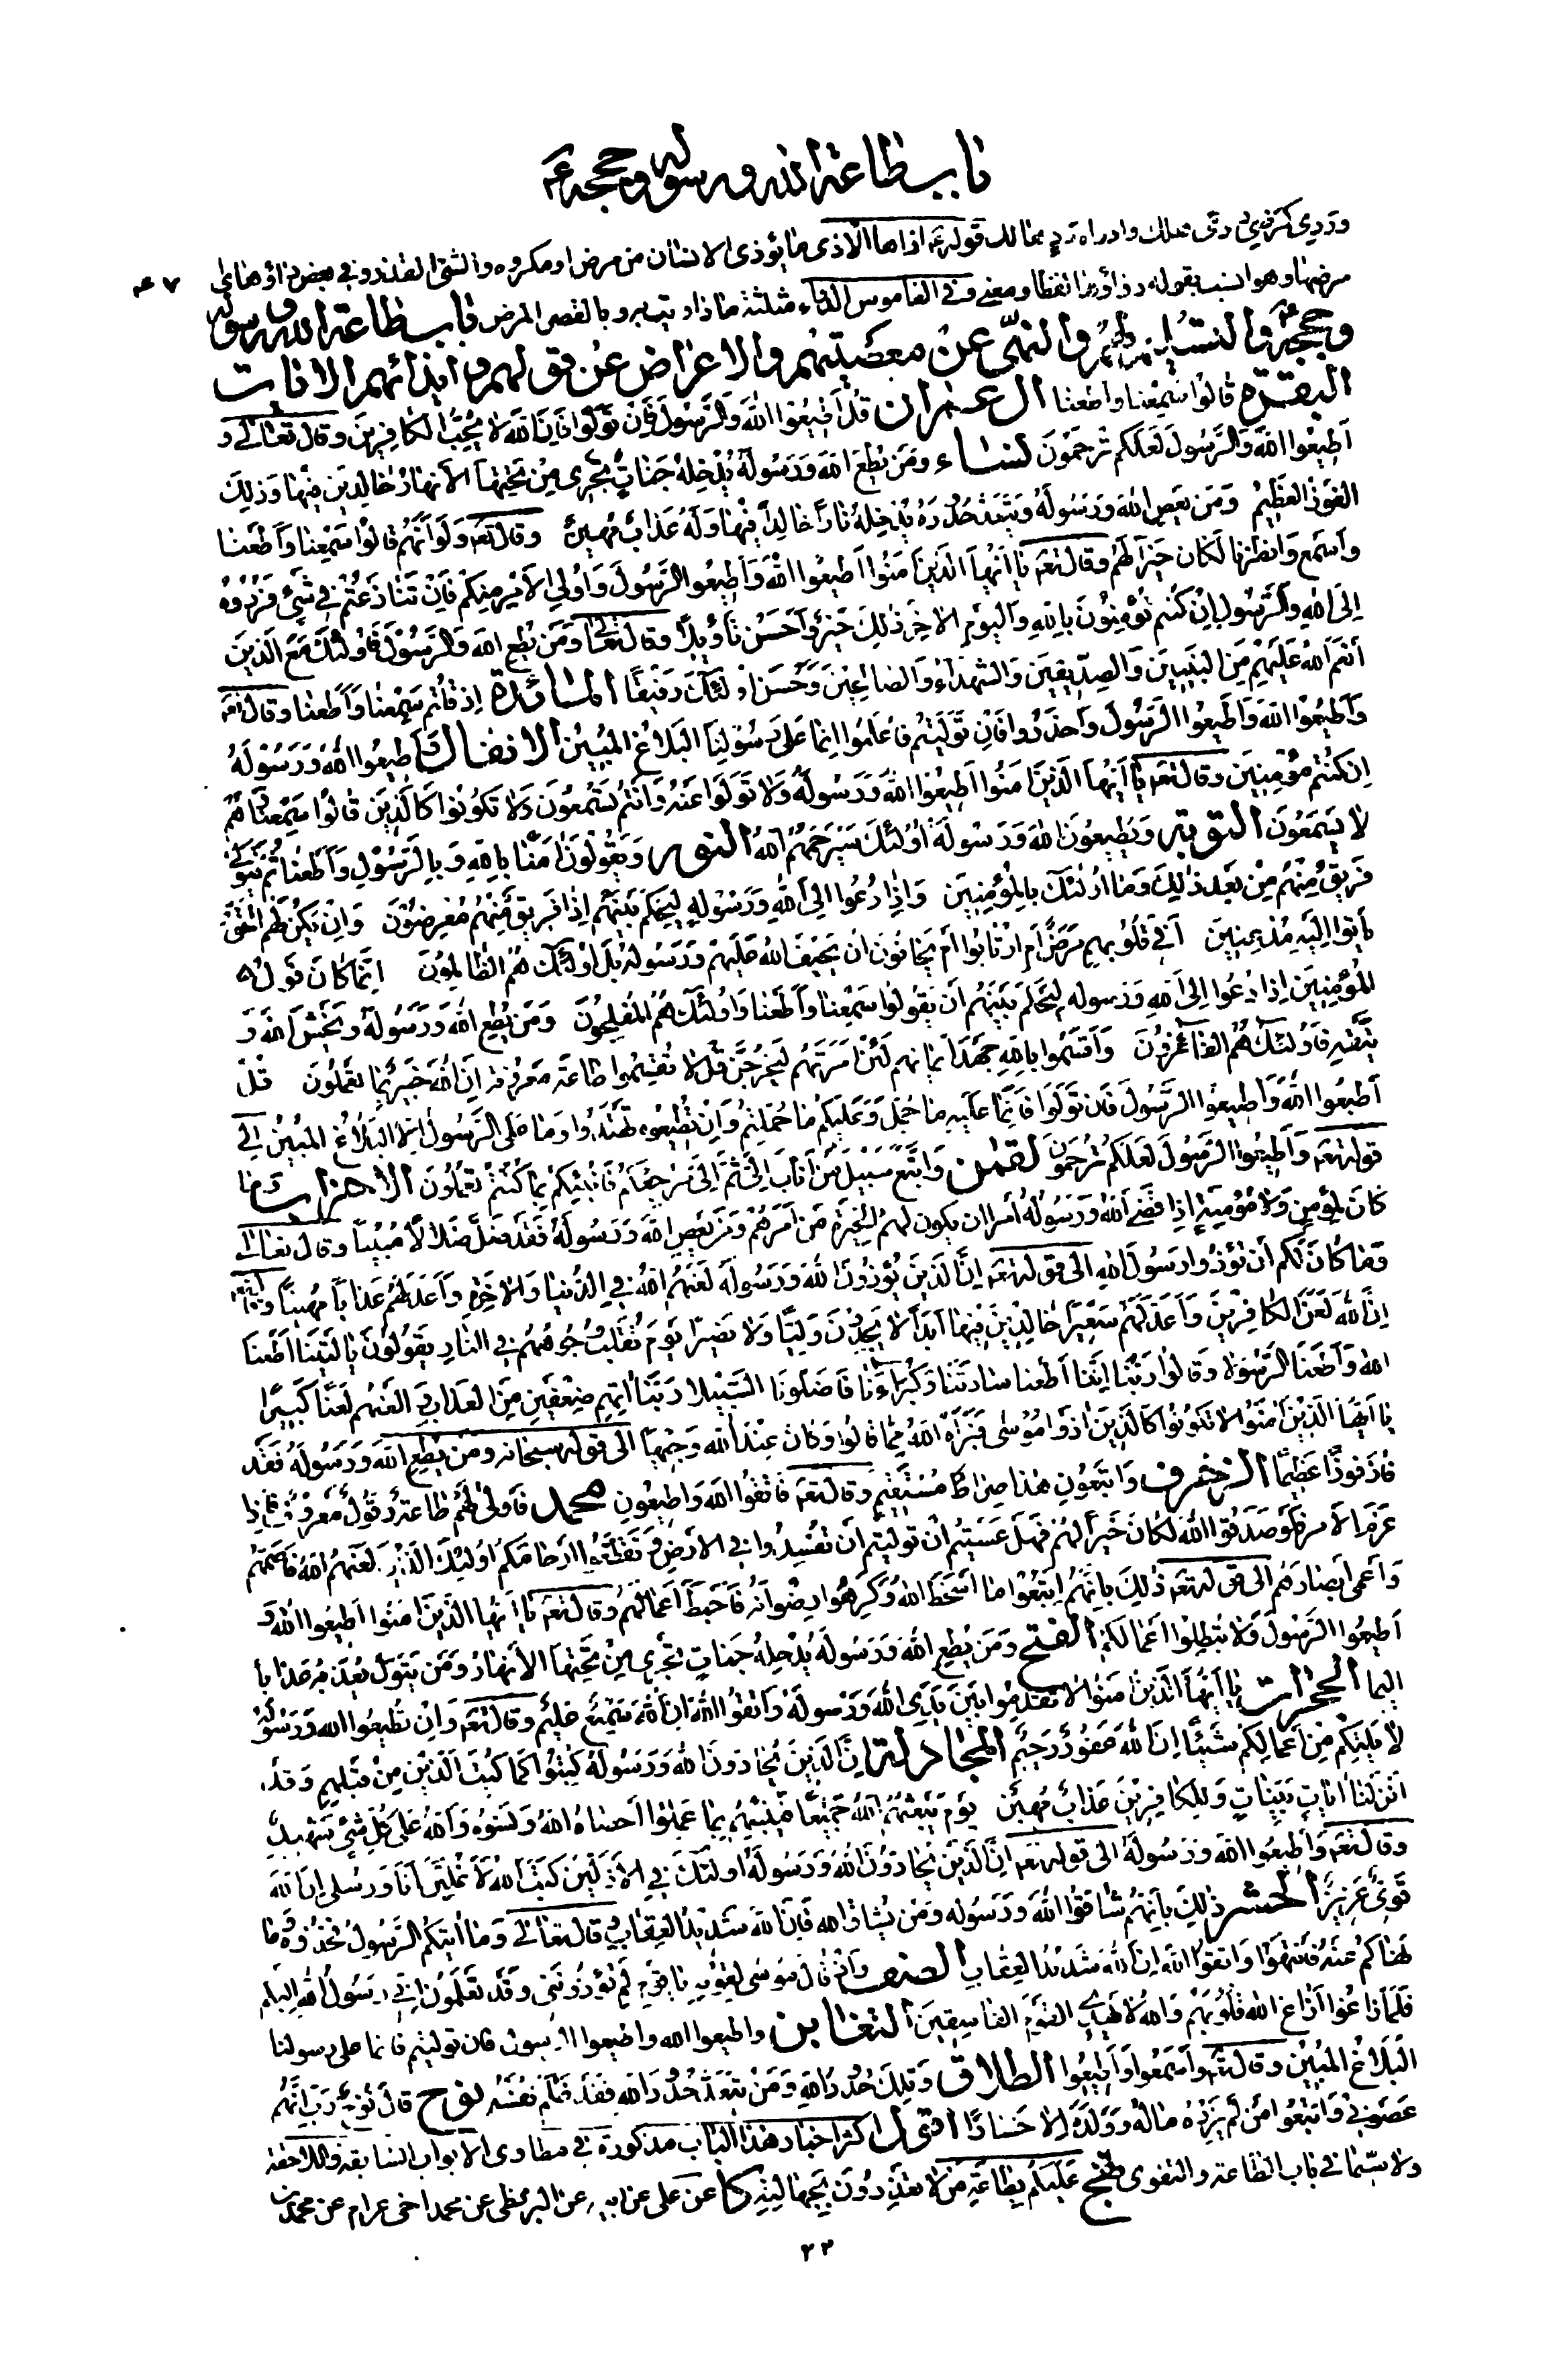 باب طاعة الله ورسوله وحججه عم
قوله عم اذاها الاذى ما يؤذى الانسان من مرض او مكروه والشئ القذر وفي بعض
مرضها وهو انسب بقوله دواؤها لفظا ومعنى وفي القاموس الدواء مثلثة ما داويت به وبالقصر المرض باب طاعة الله ورسوله
وحججه عم والتسليم لهم والنهى عن معصيتهم والاعراض عن قولهم وايذائهم الايات
البقرة قالوا سمعنا واطعنا ال عمران قُلْ اَطِيعُوا اللهَ وَالرَّسُولَ فَاِنْ تَوَلَّوْا فَاِنَّ اللهَ لا يُحِبُّ الكافِرِينَ وقال تعالى وَ
اَطِيعُوا اللهَ وَالرَّسُولَ لَعَلَّكُمْ تُرْحَمُونَ النساء ومَن يُطِعِ اللهَ وَرَسُولَهُ يُدْخِلْهُ جَنّاتٍ تَجْرِى مِنْ تَحْتِهَا الاَنْهارُ خالِدِينَ فِيها وَذلِكَ
الفَوْزُ العَظِيمُ وَمَن يَعْصِ اللهَ وَرَسُولَهُ وَيَتَعَدَّ حُدُودَهُ يُدْخِلْهُ نارًا خالِدًا فِيها وَلَهُ عَذابٌ مُهِينٌ وقال تعه وَلَوْ اَنَّهُمْ قالُوا سَمِعْنا وَاَطَعْنا
وَاسْمَعْ وَانْظُرْنا لَكانَ خَيْرًا لَهُمْ وقال تعه يا اَيُّهَا الَّذِينَ امَنُوا اَطِيعُوا اللهَ وَاَطِيعُوا الرَّسُولَ وَاُولِي الاَمْرِ مِنْكُمْ فَاِنْ تَنازَعْتُمْ فِي شَيْءٍ فَرُدُّوهُ
اِلَى اللهِ وَالرَّسُولِ اِنْ كُنْتُمْ تُؤْمِنُونَ بِاللهِ وَاليَوْمِ الاخِرِ ذلِكَ خَيْرٌ وَاَحْسَنُ تَأْوِيلًا وقال تعالى وَمَن يُطِعِ اللهَ وَالرَّسُولَ فَاُولئِكَ مَعَ الَّذِينَ
اَنْعَمَ اللهُ عَلَيْهِمْ مِنَ النَّبِيِّينَ وَالصِّدِّيقِينَ وَالشُّهَداءِ وَالصّالِحِينَ وَحَسُنَ اُولئِكَ رَفِيقًا المائدة اِذْ قُلْتُمْ سَمِعْنا وَاَطَعْنا وقال تعه
وَاَطِيعُوا اللهَ وَاَطِيعُوا الرَّسُولَ وَاحْذَرُوا فَاِنْ تَوَلَّيْتُمْ فَاعْلَمُوا اَنَّما عَلى رَسُولِنَا البَلاغُ المُبِينُ الانفال اَطِيعُوا اللهَ وَرَسُولَهُ
اِنْ كُنْتُمْ مُؤْمِنِينَ وقال تعه يا اَيُّهَا الَّذِينَ امَنُوا اَطِيعُوا اللهَ وَرَسُولَهُ وَلا تَوَلَّوْا عَنْهُ وَاَنْتُمْ تَسْمَعُونَ وَلا تَكُونُوا كَالَّذِينَ قالُوا سَمِعْنا وَهُمْ
لا يَسْمَعُونَ التوبة وَيُطِيعُونَ اللهَ وَرَسُولَهُ اُولئِكَ سَيَرْحَمُهُمُ اللهُ النور وَيَقُولُونَ امَنّا بِاللهِ وَبِالرَّسُولِ وَاَطَعْنا ثُمَّ يَتَوَلّى
فَرِيقٌ مِنْهُمْ مِنْ بَعْدِ ذلِكَ وَما اُولئِكَ بِالمُؤْمِنِينَ وَاِذا دُعُوا اِلَى اللهِ وَرَسُولِهِ لِيَحْكُمَ بَيْنَهُمْ اِذا فَرِيقٌ مِنْهُمْ مُعْرِضُونَ وَاِنْ يَكُنْ لَهُمُ الحَقُّ
يَأْتُوا اِلَيْهِ مُذْعِنِينَ اَفِي قُلُوبِهِمْ مَرَضٌ اَمِ ارْتابُوا اَمْ يَخافُونَ اَنْ يَحِيفَ اللهُ عَلَيْهِمْ وَرَسُولُهُ بَلْ اُولئِكَ هُمُ الظّالِمُونَ اِنَّما كانَ قَوْلَ
المُؤْمِنِينَ اِذا دُعُوا اِلَى اللهِ وَرَسُولِهِ لِيَحْكُمَ بَيْنَهُمْ اَنْ يَقُولُوا سَمِعْنا وَاَطَعْنا وَاُولئِكَ هُمُ المُفْلِحُونَ وَمَن يُطِعِ اللهَ وَرَسُولَهُ وَيَخْشَ اللهَ وَ
يَتَّقْهِ فَاُولئِكَ هُمُ الفائِزُونَ وَاَقْسَمُوا بِاللهِ جَهْدَ اَيْمانِهِمْ لَئِنْ اَمَرْتَهُمْ لَيَخْرُجُنَّ قُلْ لا تُقْسِمُوا طاعَةٌ مَعْرُوفَةٌ اِنَّ اللهَ خَبِيرٌ بِما تَعْمَلُونَ قُلْ
اَطِيعُوا اللهَ وَاَطِيعُوا الرَّسُولَ فَاِنْ تَوَلَّوْا فَاِنَّما عَلَيْهِ ما حُمِّلَ وَعَلَيْكُمْ ما حُمِّلْتُمْ وَاِنْ تُطِيعُوهُ تَهْتَدُوا وَما عَلَى الرَّسُولِ اِلَّا البَلاغُ المُبِينُ الى
قوله تعه وَاَطِيعُوا الرَّسُولَ لَعَلَّكُمْ تُرْحَمُونَ لقمن وَاتَّبِعْ سَبِيلَ مَنْ اَنابَ اِلَيَّ ثُمَّ اِلَيَّ مَرْجِعُكُمْ فَاُنَبِّئُكُمْ بِما كُنْتُمْ تَعْمَلُونَ الاحزاب وَما
كانَ لِمُؤْمِنٍ وَلا مُؤْمِنَةٍ اِذا قَضَى اللهُ وَرَسُولُهُ اَمْرًا اَنْ يَكُونَ لَهُمُ الخِيَرَةُ مِنْ اَمْرِهِمْ وَمَنْ يَعْصِ اللهَ وَرَسُولَهُ فَقَدْ ضَلَّ ضَلالًا مُبِينًا وقال تعالى
وَما كانَ لَكُمْ اَنْ تُؤْذُوا رَسُولَ اللهِ الى قوله تعه اِنَّ الَّذِينَ يُؤْذُونَ اللهَ وَرَسُولَهُ لَعَنَهُمُ اللهُ فِي الدُّنْيا وَالاخِرَةِ وَاَعَدَّ لَهُمْ عَذابًا مُهِينًا وقال تعه
اِنَّ اللهَ لَعَنَ الكافِرِينَ وَاَعَدَّ لَهُمْ سَعِيرًا خالِدِينَ فِيها اَبَدًا لا يَجِدُونَ وَلِيًّا وَلا نَصِيرًا يَوْمَ تُقَلَّبُ وُجُوهُهُمْ فِي النّارِ يَقُولُونَ يا لَيْتَنا اَطَعْنَا
اللهَ وَاَطَعْنَا الرَّسُولا وَقالُوا رَبَّنا اِنّا اَطَعْنا سادَتَنا وَكُبَراءَنا فَاَضَلُّونَا السَّبِيلا رَبَّنا اتِهِمْ ضِعْفَيْنِ مِنَ العَذابِ وَالعَنْهُمْ لَعْنًا كَبِيرًا
يا اَيُّهَا الَّذِينَ امَنُوا لا تَكُونُوا كَالَّذِينَ اذَوْا مُوسى فَبَرَّأَهُ اللهُ مِمّا قالُوا وَكانَ عِنْدَ اللهِ وَجِيهًا الى قوله سبحانه وَمَن يُطِعِ اللهَ وَرَسُولَهُ فَقَدْ
فازَ فَوْزًا عَظِيمًا الزخرف وَاتَّبِعُونِ هذا صِراطٌ مُسْتَقِيمٌ وقال تعه فَاتَّقُوا اللهَ وَاَطِيعُونِ محمد فَاَوْلى لَهُمْ طاعَةٌ وَقَوْلٌ مَعْرُوفٌ فَاِذا
عَزَمَ الاَمْرُ فَلَوْ صَدَقُوا اللهَ لَكانَ خَيْرًا لَهُمْ فَهَلْ عَسَيْتُمْ اِنْ تَوَلَّيْتُمْ اَنْ تُفْسِدُوا فِي الاَرْضِ وَتُقَطِّعُوا اَرْحامَكُمْ اُولئِكَ الَّذِينَ لَعَنَهُمُ اللهُ فَاَصَمَّهُمْ
وَاَعْمى اَبْصارَهُمْ الى قوله تعه ذلِكَ بِاَنَّهُمُ اتَّبَعُوا ما اَسْخَطَ اللهَ وَكَرِهُوا رِضْوانَهُ فَاَحْبَطَ اَعْمالَهُمْ وقال تعه يا اَيُّهَا الَّذِينَ امَنُوا اَطِيعُوا اللهَ وَ
اَطِيعُوا الرَّسُولَ وَلا تُبْطِلُوا اَعْمالَكُمْ الفتح وَمَن يُطِعِ اللهَ وَرَسُولَهُ يُدْخِلْهُ جَنّاتٍ تَجْرِى مِنْ تَحْتِهَا الاَنْهارُ وَمَن يَتَوَلَّ يُعَذِّبْهُ عَذابًا
اَلِيمًا الحجرات يا اَيُّهَا الَّذِينَ امَنُوا لا تُقَدِّمُوا بَيْنَ يَدَيِ اللهِ وَرَسُولِهِ وَاتَّقُوا اللهَ اِنَّ اللهَ سَمِيعٌ عَلِيمٌ وقال تعه وَاِنْ تُطِيعُوا اللهَ وَرَسُولَهُ
لا يَلِتْكُمْ مِنْ اَعْمالِكُمْ شَيْئًا اِنَّ اللهَ غَفُورٌ رَحِيمٌ المجادلة اِنَّ الَّذِينَ يُحادُّونَ اللهَ وَرَسُولَهُ كُبِتُوا كَما كُبِتَ الَّذِينَ مِنْ قَبْلِهِمْ وَقَدْ
اَنْزَلْنا اياتٍ بَيِّناتٍ وَلِلكافِرِينَ عَذابٌ مُهِينٌ يَوْمَ يَبْعَثُهُمُ اللهُ جَمِيعًا فَيُنَبِّئُهُمْ بِما عَمِلُوا اَحْصاهُ اللهُ وَنَسُوهُ وَاللهُ عَلى كُلِّ شَيْءٍ شَهِيدٌ
وقال تعه وَاَطِيعُوا اللهَ وَرَسُولَهُ الى قوله تعه اِنَّ الَّذِينَ يُحادُّونَ اللهَ وَرَسُولَهُ اُولئِكَ فِي الاَذَلِّينَ كَتَبَ اللهُ لَاَغْلِبَنَّ اَنَا وَرُسُلِي اِنَّ اللهَ
قَوِيٌّ عَزِيزٌ الحشر ذلِكَ بِاَنَّهُمْ شاقُّوا اللهَ وَرَسُولَهُ وَمَنْ يُشاقِّ اللهَ فَاِنَّ اللهَ شَدِيدُ العِقابِ وقال تعالى وَما اتيكُمُ الرَّسُولُ فَخُذُوهُ وَما
نَهاكُمْ عَنْهُ فَانْتَهُوا وَاتَّقُوا اللهَ اِنَّ اللهَ شَدِيدُ العِقابِ الصف وَاِذْ قالَ مُوسى لِقَوْمِهِ يا قَوْمِ لِمَ تُؤْذُونَنِي وَقَدْ تَعْلَمُونَ اَنِّي رَسُولُ اللهِ اِلَيْكُمْ
فَلَمّا زاغُوا اَزاغَ اللهُ قُلُوبَهُمْ وَاللهُ لا يَهْدِي القَوْمَ الفاسِقِينَ التغابن واطيعوا الله واطيعوا الرسول فان توليتم فانما على رسولنا
البَلاغُ المُبِينُ وقال تعه وَاسْمَعُوا وَاَطِيعُوا الطلاق وَتِلْكَ حُدُودُ اللهِ وَمَنْ يَتَعَدَّ حُدُودَ اللهِ فَقَدْ ظَلَمَ نَفْسَهُ نوح قالَ نُوحٌ رَبِّ اِنَّهُمْ
عَصَوْنِي وَاتَّبَعُوا مَنْ لَمْ يَزِدْهُ مالُهُ وَوَلَدُهُ اِلّا خَسارًا اقول اكثر اخبار هذا الباب مذكورة في مطاوى الابواب السابقة واللاحقة
ولا سيما في باب الطاعة والتقوى نهج عَلَيْكُمْ بِطاعَةِ مَنْ لا تُعْذَرُونَ بِجَهالَتِهِ كا عن على عن ابيه عن البزنطى عن محمد اخى عرام عن محمد بن
٢٣